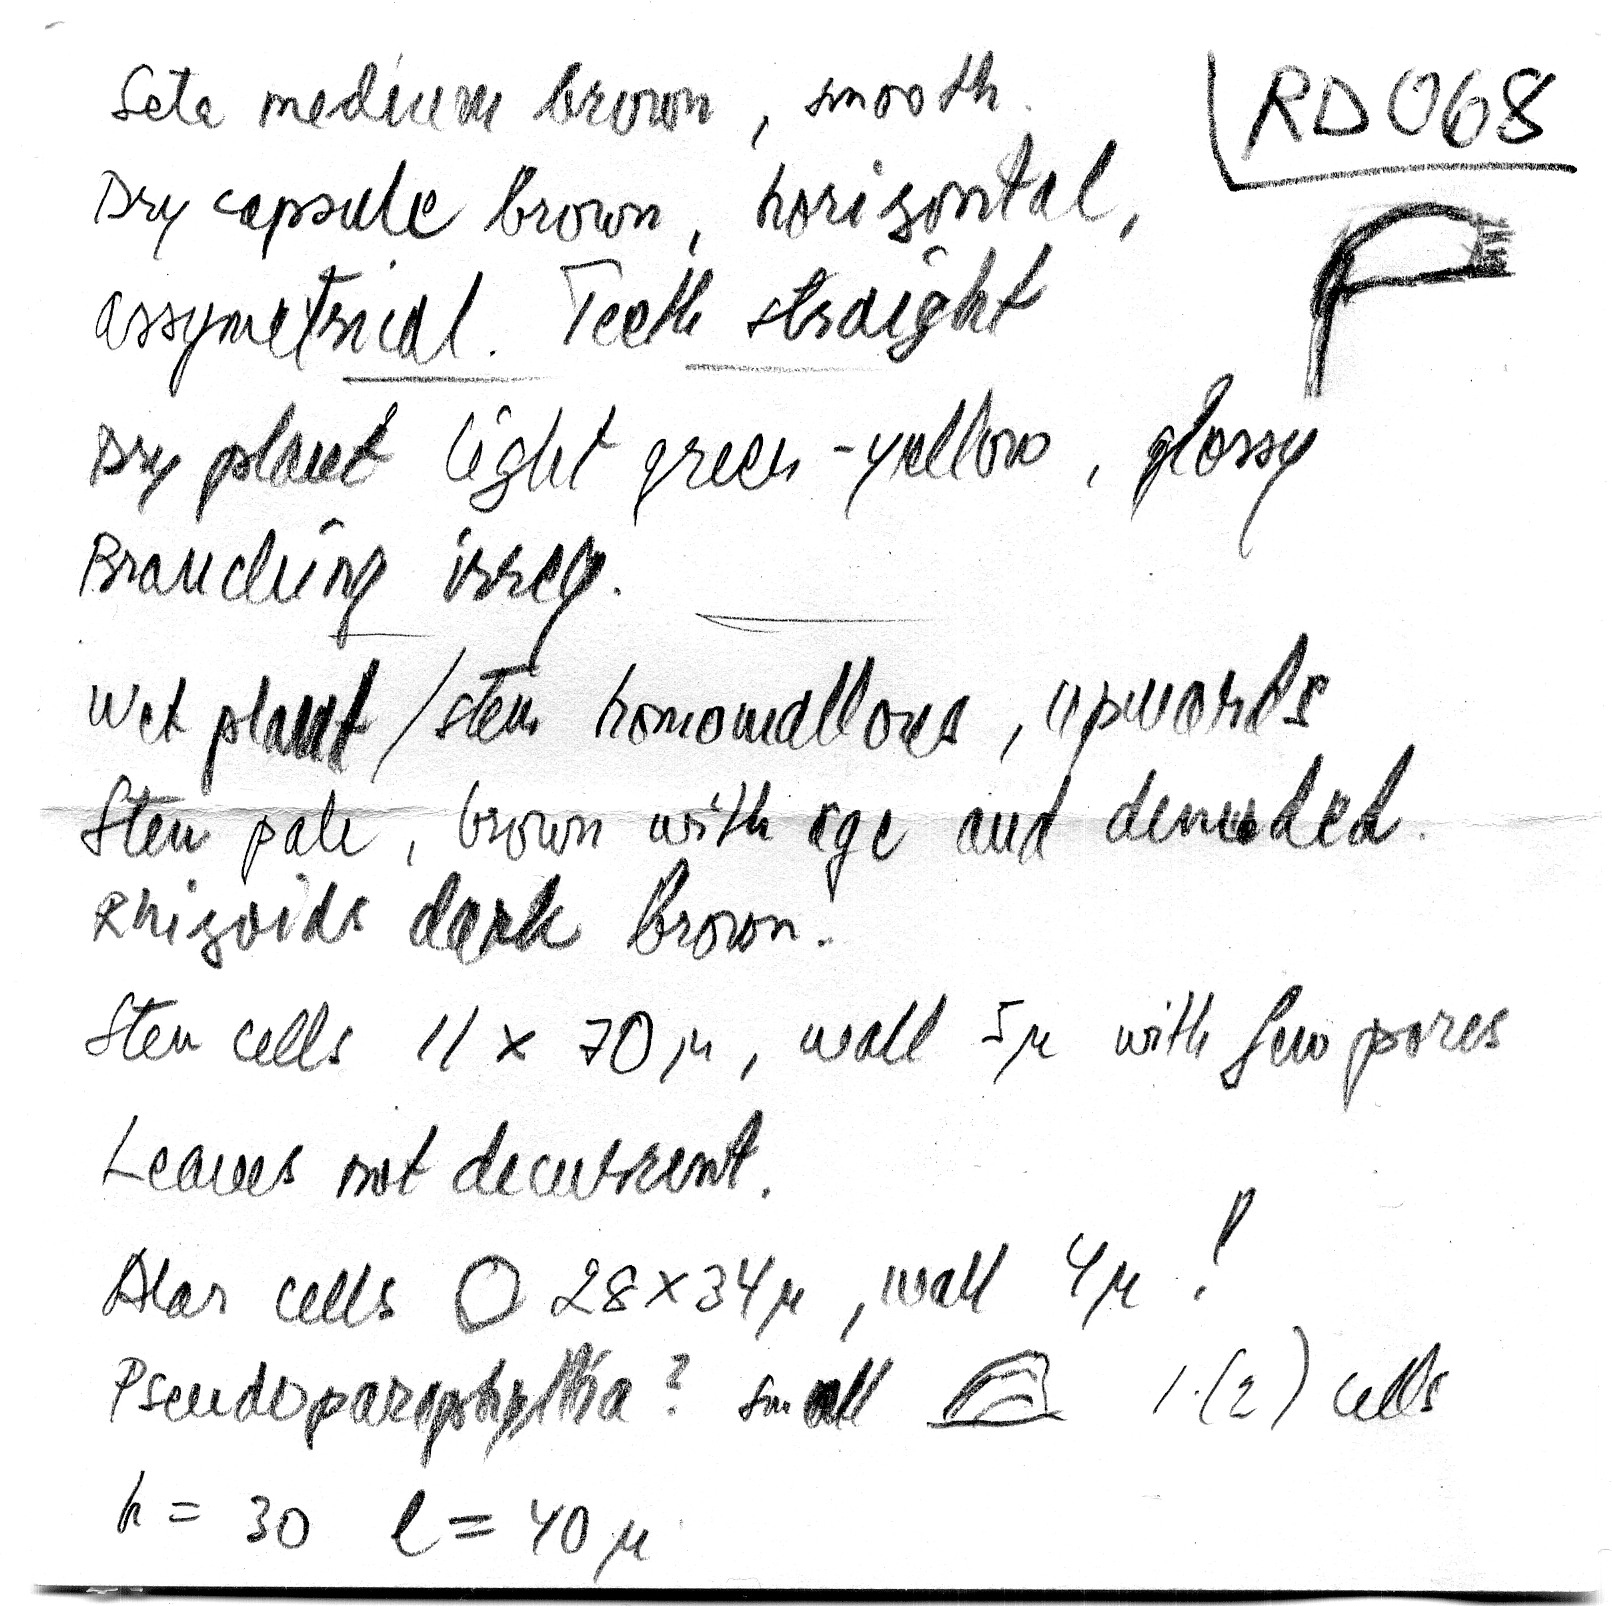 RD068
Seta medium brown, smooth.
Dry capsule brown, horizontal,
assymetrical. Teeth straight
Dry plant light green-yellow, glossy
Branching irreg.
Wet plant/stem homomallous, upwards
Stem pale, brown with age and denuded.
Rhizoids dark brown.
Stem cells 11 x 70 μ, wall 5μ with few pores
Leaves not decurrent.
Alar cells 28x34μ, wall 4μ!
Pseudoparaphyllia? small 1-(2) cells
h = 30 l = 40 μ